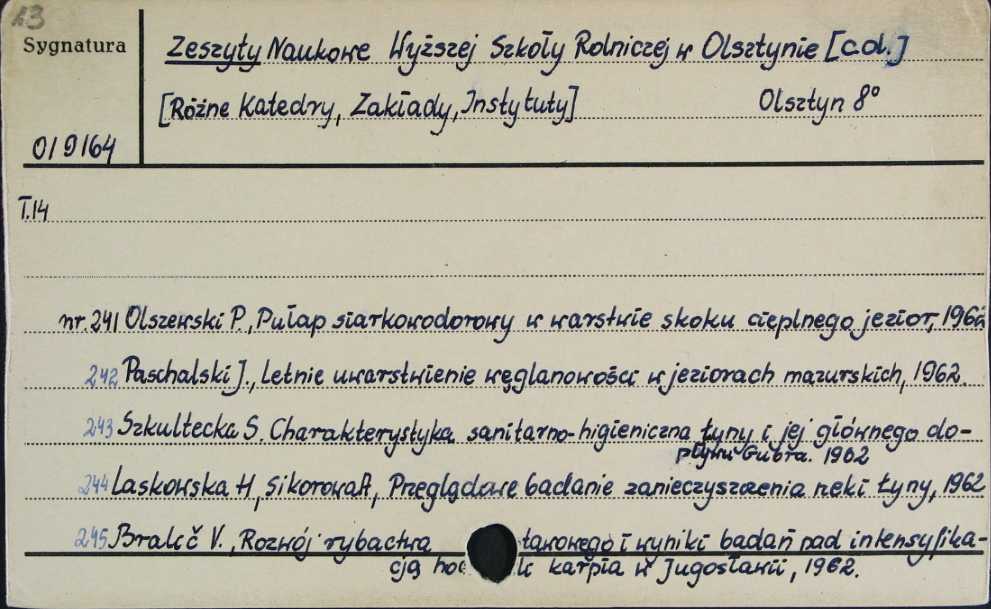 13
Sygnatura
Zeszyty Naukowe Wyższej Szkoły Rolniczej w Olsztynie [c.d.]
[Różne Katedry, Zakłady, Instytuty] Olsztyn 8°
0/9/64
T.14
nr. 241 Olszewski P., Pułap siarkowodorowy w warstwie skoku cieplnego jezior,
242 Paschalski J., Letnie uwarstwienie węglanowości w jeziorach mazurskich, 1962.
243 Szkultecka S. Charakterystyka sanitarno-higieniczna Łyny i jej głównego do-
pływu Gubra. 1962
244 Laskowska H, Sikorowa A, Przeglądowe badanie zanieczyszczenia rzeki Łyny, 1962
245 Bralić V., Rozwój rybactwa tawowego i wyniki badań nad intensyfika-
cją ho li karpia w Jugosławii, 1962.